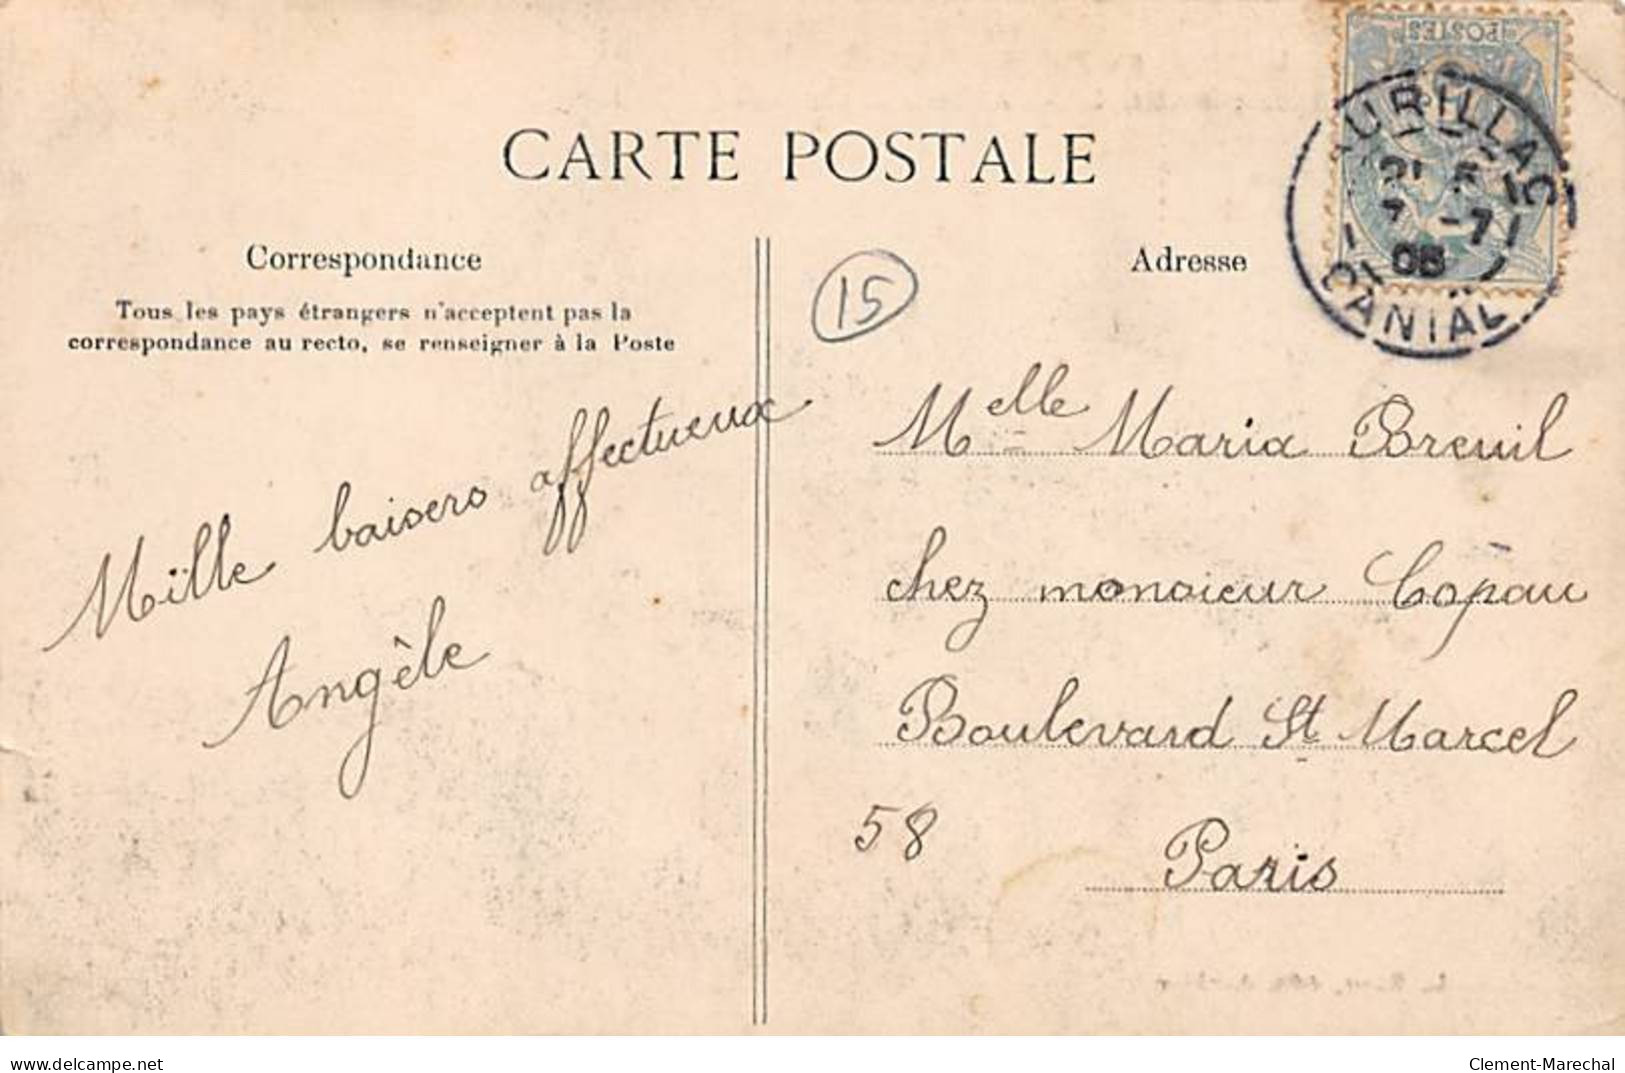 POSTES
AURILLAC
7 -7
08
CANTAL
CARTE POSTALE
Correspondance
Tous les pays étrangers n'acceptent pas la
correspondance au recto, se renseigner à la Poste
Mille baisers affectueux
Angèle
15
Adresse
Melle Maria Breuil
chez monsieur Copau
Boulevard St Marcel
58
Paris
delcampe.net
Clement-Marechal